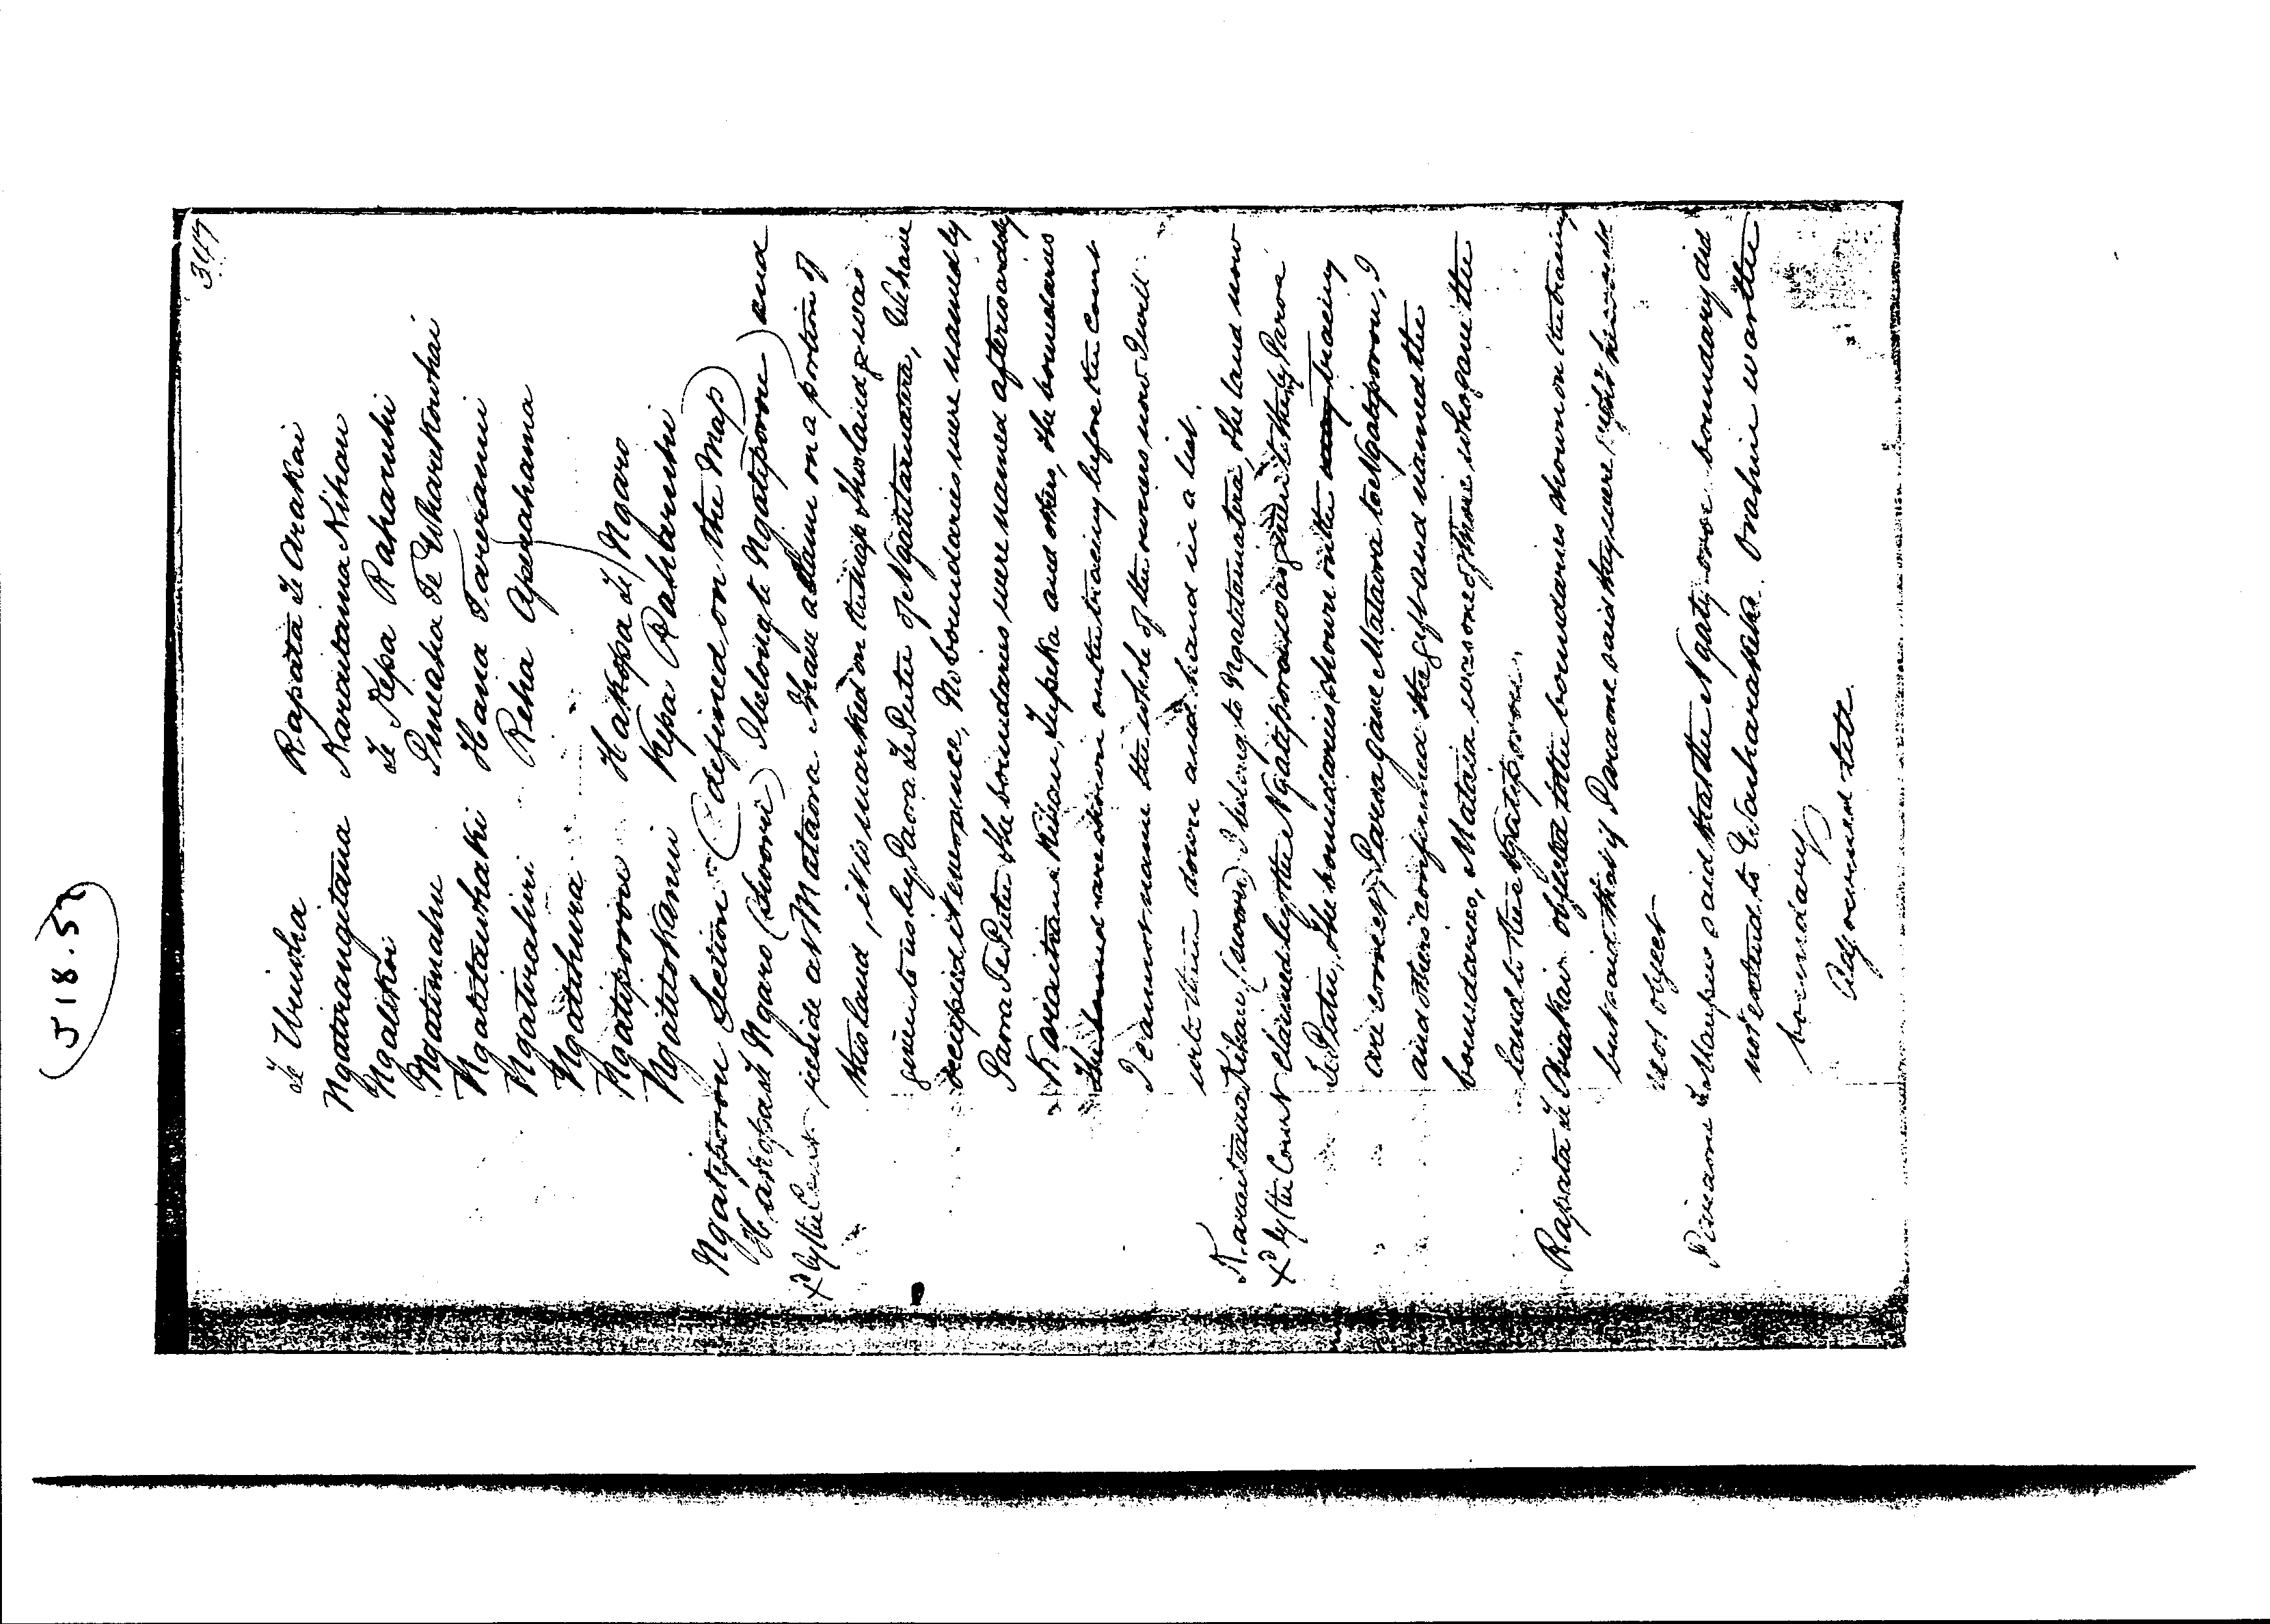 (J18.5)
317
Te Uruhia Rapata Te Arakai
Ngatirangitana Karaitiana Kihau
Ngatikoi Te Kepa Raharuhi
Ngatimahu Pineaha Te Wharekowhai
Ngatitawhaki Hana Tareranui
Ngatirahiri Reha Aperahama
Ngatihura
Ngatiporou Hakopa Te Ngaro
Ngatitokanui Kepa Raharuhi
Ngatiporou Section (defined on the Map)
Hakopa Te Ngaro (Sworn) I belong to Ngatiporou and
xd by the Court reside at Mataora I have a claim on a portion of
this land, it is marked on the map this land was
given to us by Parra Te Pute of Ngatitamatera, We have
occupied it ever since, No boundaries were named by
Parra Te Pute the boundaries were named afterwards by
Karaitiana Kihau, Tupeka and others, the boundaries
are shown on the tracing before the Court
I cannot name the whole of the owners now I will
write them down and hand in a list.
Karaitiana Kihau (Sworn) I belong to Ngatitamatera, the land now
xd by the Court claimed by the Ngatiporou was given to them by Parra
Te Putu, the boundaries shown on the tracing
are correct, Parra gave Mataora to Ngatiporou, I
and others confirmed the gift and named the
boundaries, Mataia was one of those who gave the
land to the Ngatiporou.
Rapata Te Arakai objected to the boundaries shown on the tracing
but said that if Pineone said they were right he would
not object
Te said that the Ngatiporou boundary did
not extend to Wauharakeke. Orahiri was the
boundary
Adjourned till